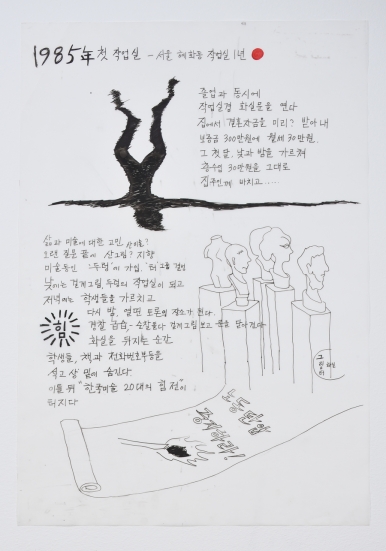 1985年 첫 작업실 - 서울 혜화동 작업실 1년
졸업과 동시에
작업실겸 화실문을 연다
집에서 결혼자금을 미리? 받아내
보증금 300만원에 월세 30만원.
그 첫달. 낮과 밤을 가르쳐
총수업 30만원을 그대로
집주인께 바치고......
삶과 미술에 대한 고민,
오랜 질문 끝에 산그림? 지향
미술동인 "두렁"에 가입.
낮에는 걸개그림, 두렁의 작업실이 되고
저녁에는 학생들을 가르치고
다시 밤, 열띤 토론의 장소가 된다.
힘
경찰 급습, 순찰돌다 걸개그림 보고
화실을 뒤지는 순간
학생들, 책과 전화번호부등을
석고상 밑에 숨긴다
이틀 뒤 "한국미술 20대의 힘 전"이
터지다
노동탄압
중지하라!